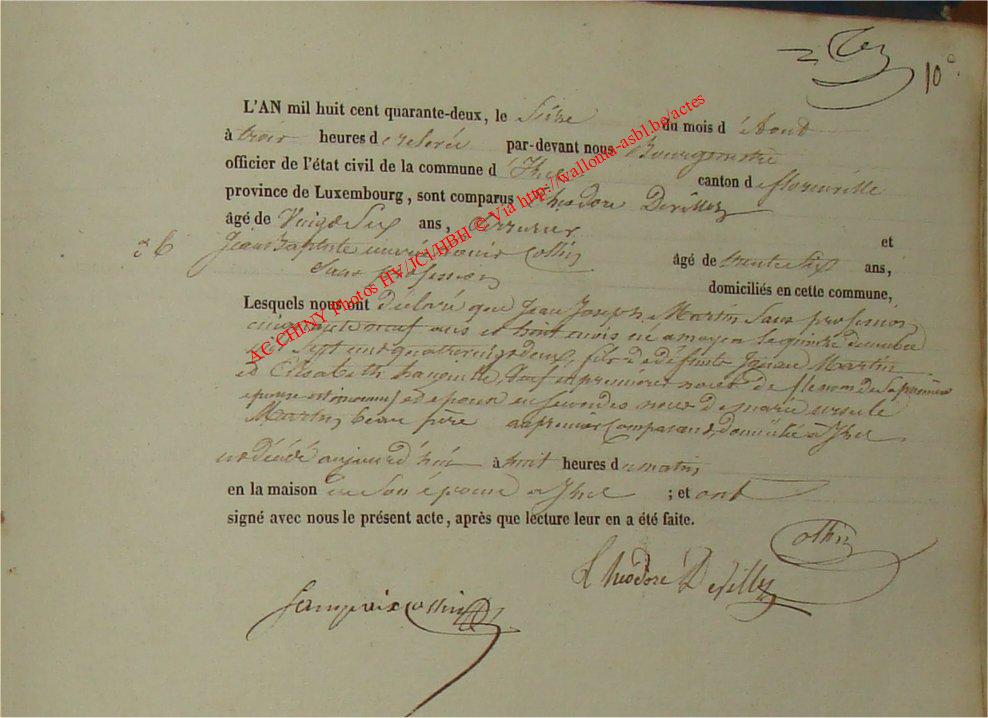 10e
L'AN mil huit cent quarante-deux, le Seize du mois d'Aout
à trois heures de relevée par-devant nous Bourgmestre
officier de l'état civil de la commune d'Izel canton de florenville
province de Luxembourg, sont comparus Théodore Devillez
âgé de Vingt Six ans, et
Jean Baptiste Collin âgé de trente Six ans,
Sans profession domiciliés en cette commune,
Lesquels nous ont déclaré que Jean Joseph Martin Sans profession
cinquante neuf ans et huit mois né a moyen le quinze decembre
mil Sept cent quatrevingt deux, fils de defunts Ignace Martin
et Elisabeth veuf en premières noces de (le nom de Sa première
epouse est inconnu) et epoux en Secondes noces de marie ursule
Martin, beau père au premier Comparant, domicilié a Izel
est décédé aujourd'hui à huit heures du matin
en la maison de Son épouse a Izel ; et ont
signé avec nous le présent acte, après que lecture leur en a été faite.
Collin
Théodore Devillez
collin
AC CHINY photos HV/JCI/HBH © Via http://wallonia-asbl.be/actes